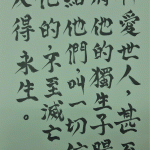 愛世人，甚至
他的獨生子賜
給他們叫一切信
他的，不至滅亡
得永生。